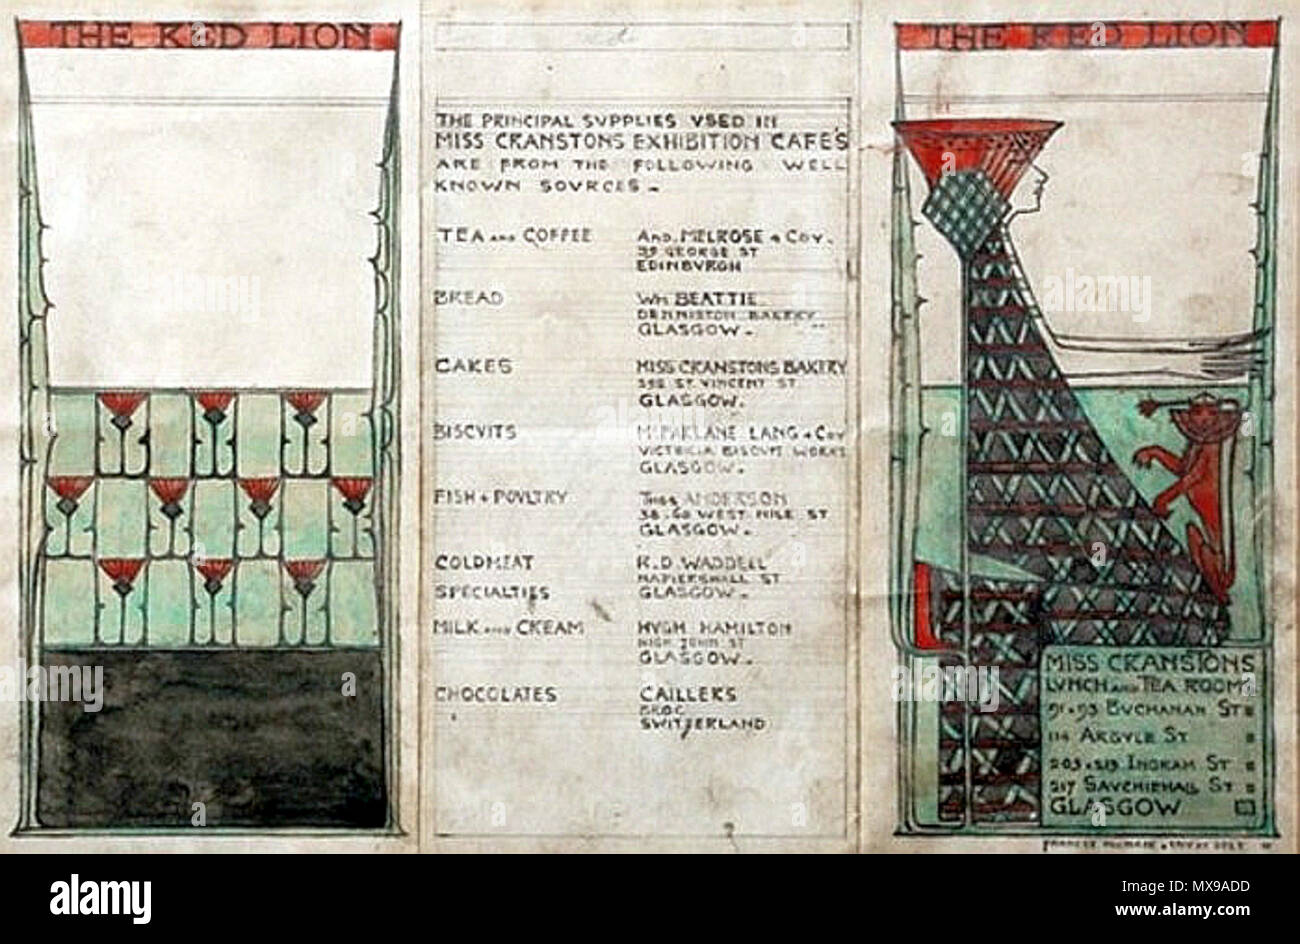 THE RED LION
THE PRINCIPAL SVPPLIES VSED IN
MISS CRANSTONS EXHIBITION CAFE'S
ARE FROM THE FOLLOWING WELL
KNOWN SOVRCES -
TEA AND COFFEE
AND. MELROSE & COY.
GEORGE ST
EDINBVRGH
BREAD
WM BEATTIE
DENNISTON BAKERY
GLASGOW -
CAKES
MISS CRANSTONS BAKERY
ST VINCENT ST
GLASGOW.
BISCVITS
MCFARLANE LANG & COY
VICTORIA BISCVIT WORKS
GLASGOW -
FISH & POVLTRY
THOS ANDERSON
WEST NILE ST
GLASGOW -
COLDMEAT
SPECIALTIES
R. D. WADDELL
NAPIERSHALL ST
GLASGOW -
MILK AND CREAM
HVGH HAMILTON
HIGH JOHN ST
GLASGOW -
CHOCOLATES
CAILLERS
BROC
SWITZERLAND
THE RED LION
MISS CRANSTONS
LVNCH AND TEA ROOMS
91 & 93 BUCHANAN ST
114 ARGYLE ST
INGRAM ST
217 SAVCHIEHALL ST
GLASGOW
alamy
alamy
Image ID: MX9ADD
www.alamy.com